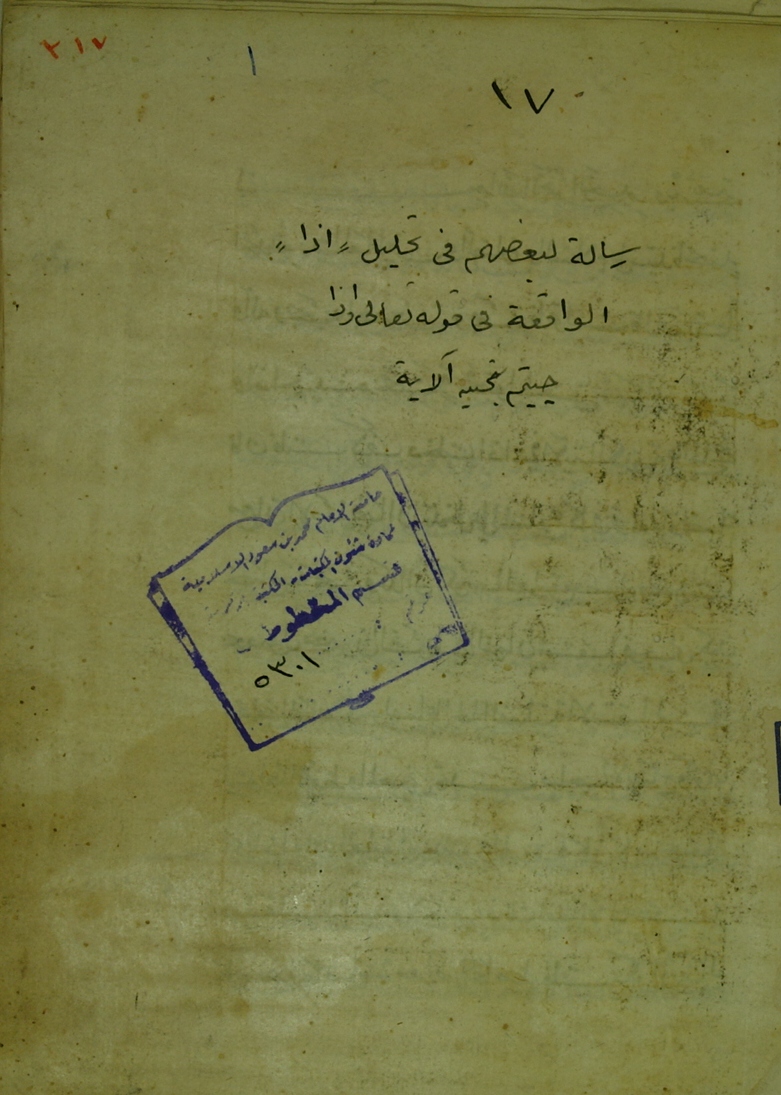 ٢١٧
١
٢٧
رسالة لبعضهم فى تحليل "اذا"
الواقعة فى قوله تعالى واذا
حييتم بتحيه آلاية
جامعة الامام محمد بن سعود الاسلامية
عمادة شئون المكتبات - المكتبة
قسم المخطوط
٥٣٠١